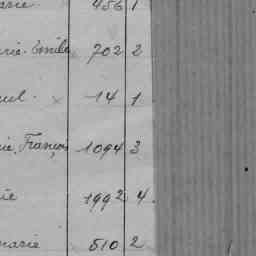 arie 456 1
rie-Emile 702 2
uel. 14 1
ie, François 1094 3
ie 1992 4
marie 510 2